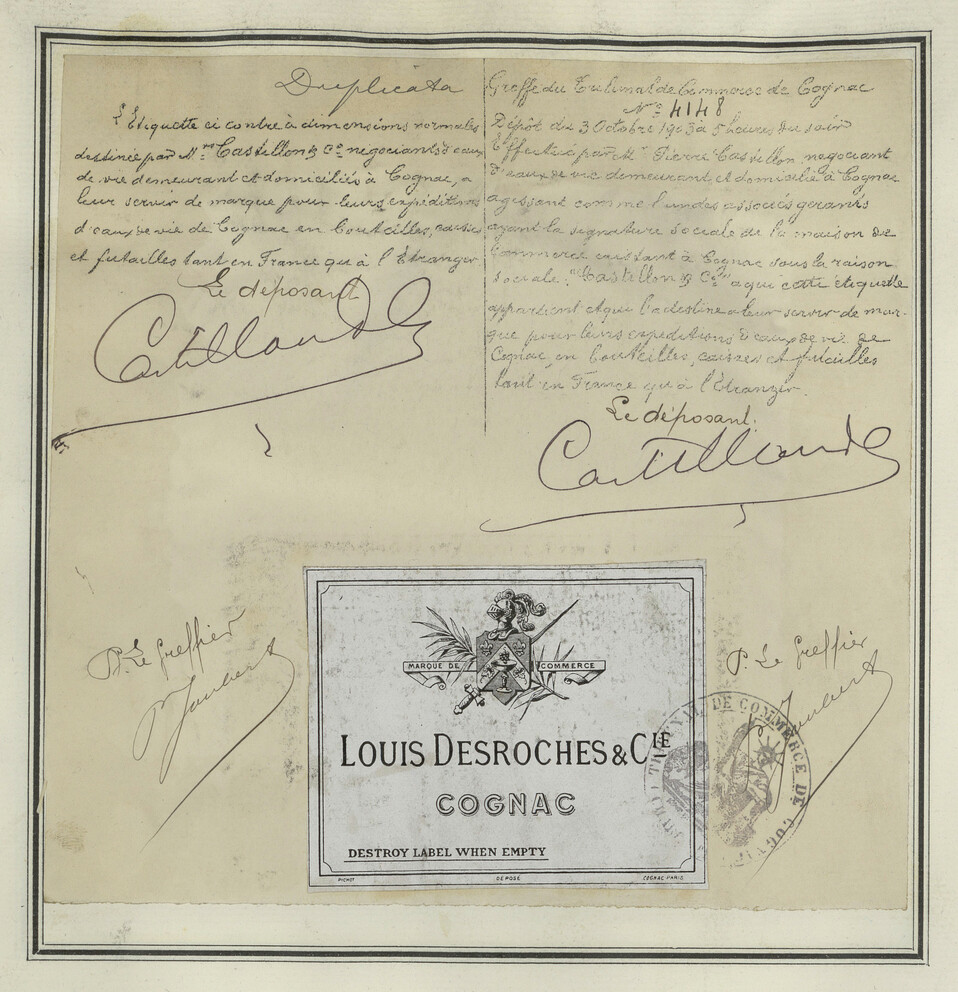 Duplicata
L'Etiquette ci contre à dimensions normales
destinée par MM.rs Castillon & Co negociants d'eaux
de vie demeurant et domiciliés à Cognac, a
leur servir de marque pour leurs expéditions
d'eaux de vie de Cognac en bouteilles, caisses
et futailles tant en France qu'à l'Etranger
Le déposant
Greffe du Tribunal de Commerce de Cognac
No 4148
Dépôt du 3 Octobre 1903 à 5 heures du soir
Effectué par M. Pierre Castillon negociant
d'eaux de vie demeurant et domicilié à Cognac
agissant comme l'un des associés gerants
ayant la signature sociale de la maison de
Commerce existant à Cognac sous la raison
sociale. "Castillon & Co" a qui cette étiquette
appartient et qui l'a destine a leur servir de mar-
que pour leurs expeditions d'eaux de vie de
Cognac, en bouteilles, caisses et futailles
tant en France qu'à l'Etranger.
Le déposant.
P. Le Greffier
P. Le Greffier
MARQUE DE COMMERCE
LOUIS DESROCHES & CIE
COGNAC
DESTROY LABEL WHEN EMPTY
PICHOT DÉPOSÉ COGNAC PARIS
TRIBUNAL DE COMMERCE DE COGNAC